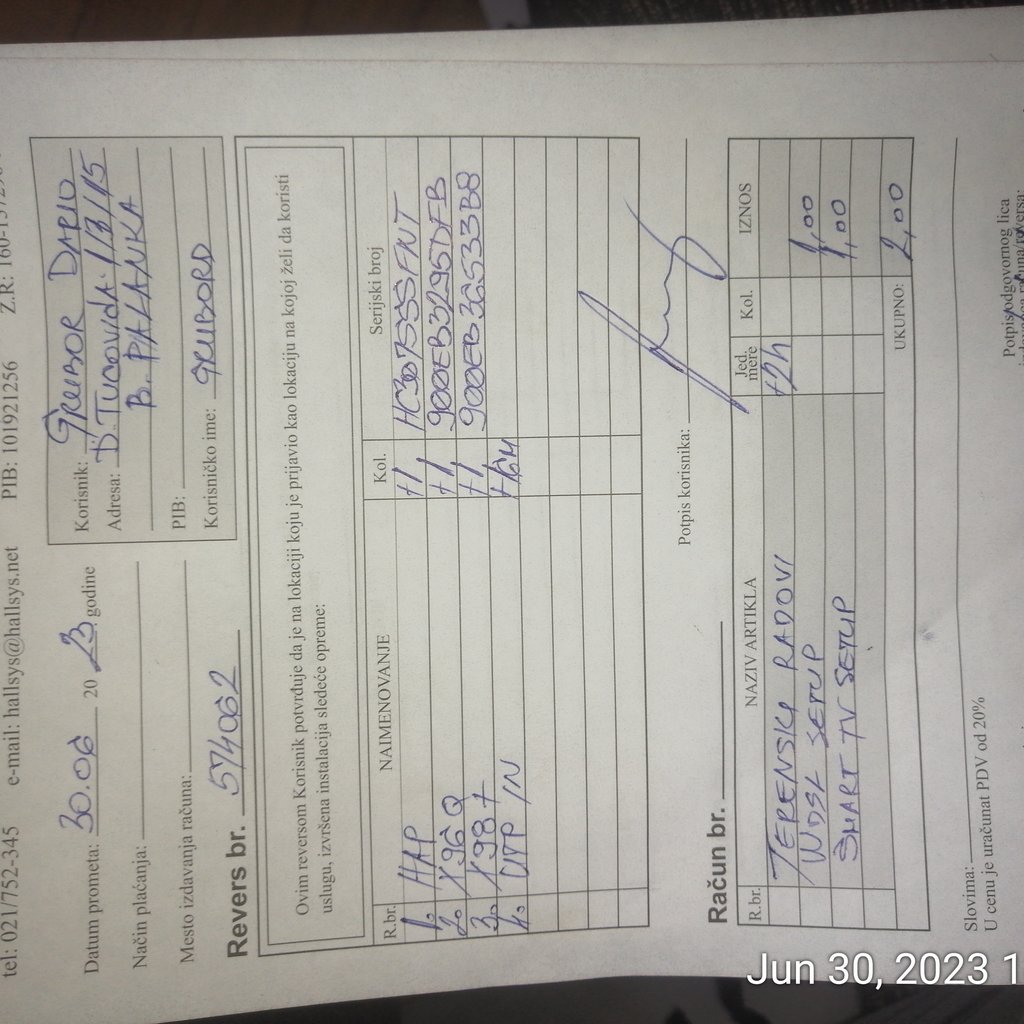 tel: 021/752-345 e-mail: hallsys@hallsys.net PIB: 101921256 Z.R: 160-
Datum prometa: 30.06 20 23 godine
Način plaćanja:
Mesto izdavanja računa:
Korisnik: GRUBOR DARIO
Adresa: D. TUCOVIĆA 1/3/15
B. PALANKA
PIB:
Korisničko ime: GRUBORD
Revers br. 574062
Ovim reversom Korisnik potvrđuje da je na lokaciji koju je prijavio kao lokaciju na kojoj želi da koristi
uslugu, izvršena instalacija sledeće opreme:
R.br. NAIMENOVANJE Kol. Serijski broj
1. HAP +1 HC3075SSFNT
2. X96Q +1 900EB3295DFB
3. +1 900EB36533B8
4. UTP IN
Potpis korisnika:
Račun br.
R.br. NAZIV ARTIKLA Jed. mere Kol. IZNOS
TERENSKI RADOVI +2h
WDSL SETUP 1,00
SMART TV SETUP 1,00
UKUPNO: 2,00
Slovima:
U cenu je uračunat PDV od 20%
Potpis odgovornog lica
Jun 30, 2023 1